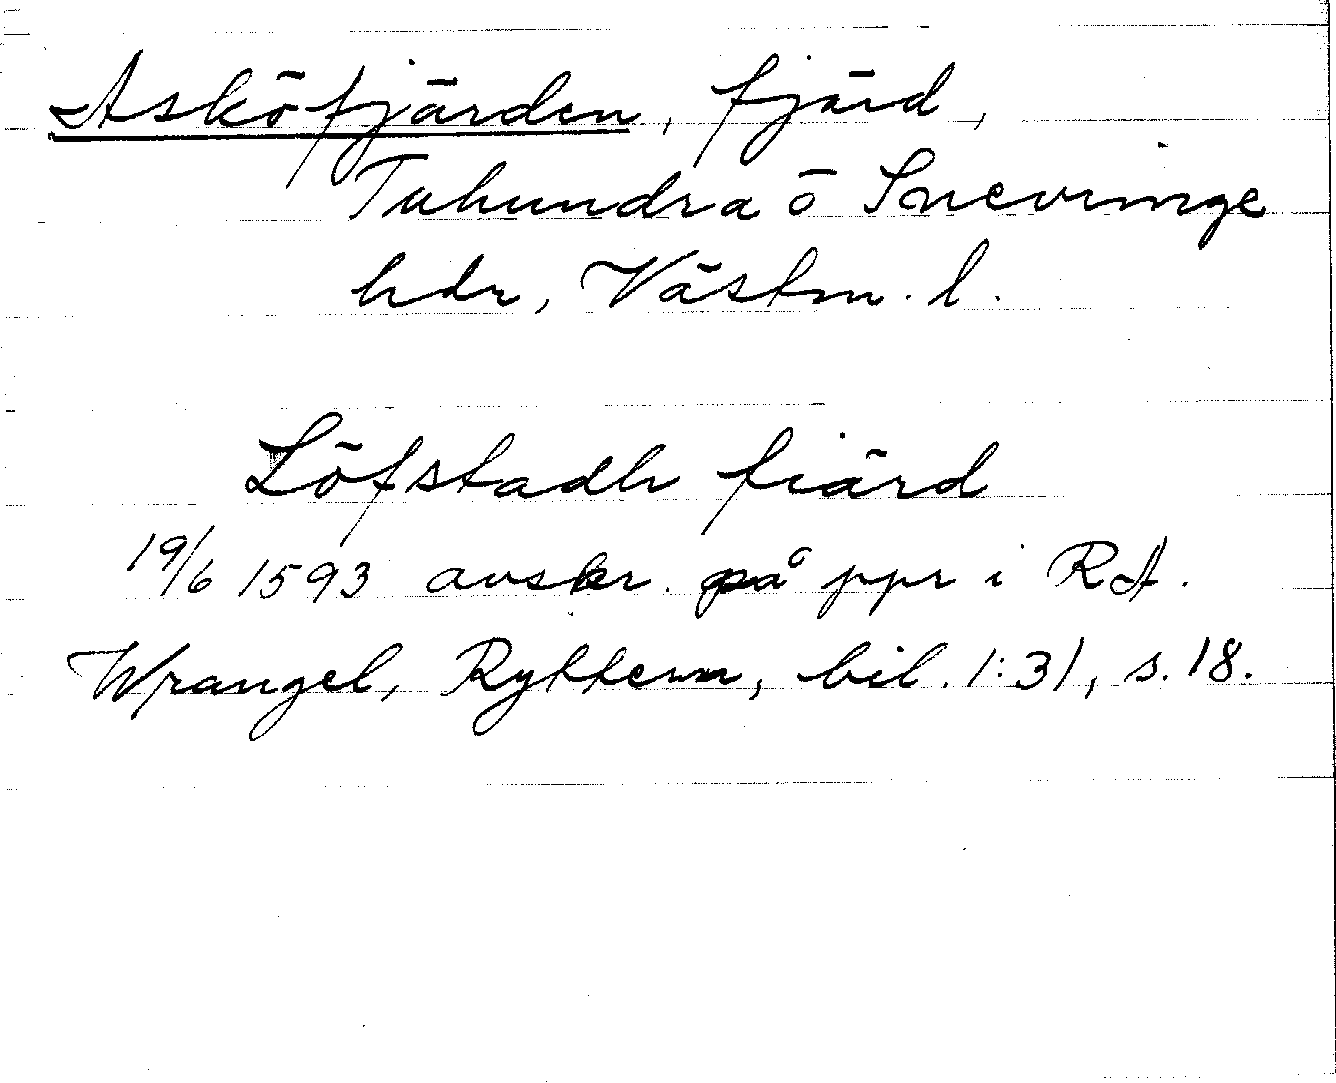 Asköfjärden, fjärd,
Tuhundra ö Snevringe
hdr, Västm. l.
Löfstadh fiärd
19/6 1593 avskr. på ppr i RA.
Wrangel, Ryttern, bil. 1:31, s. 18.